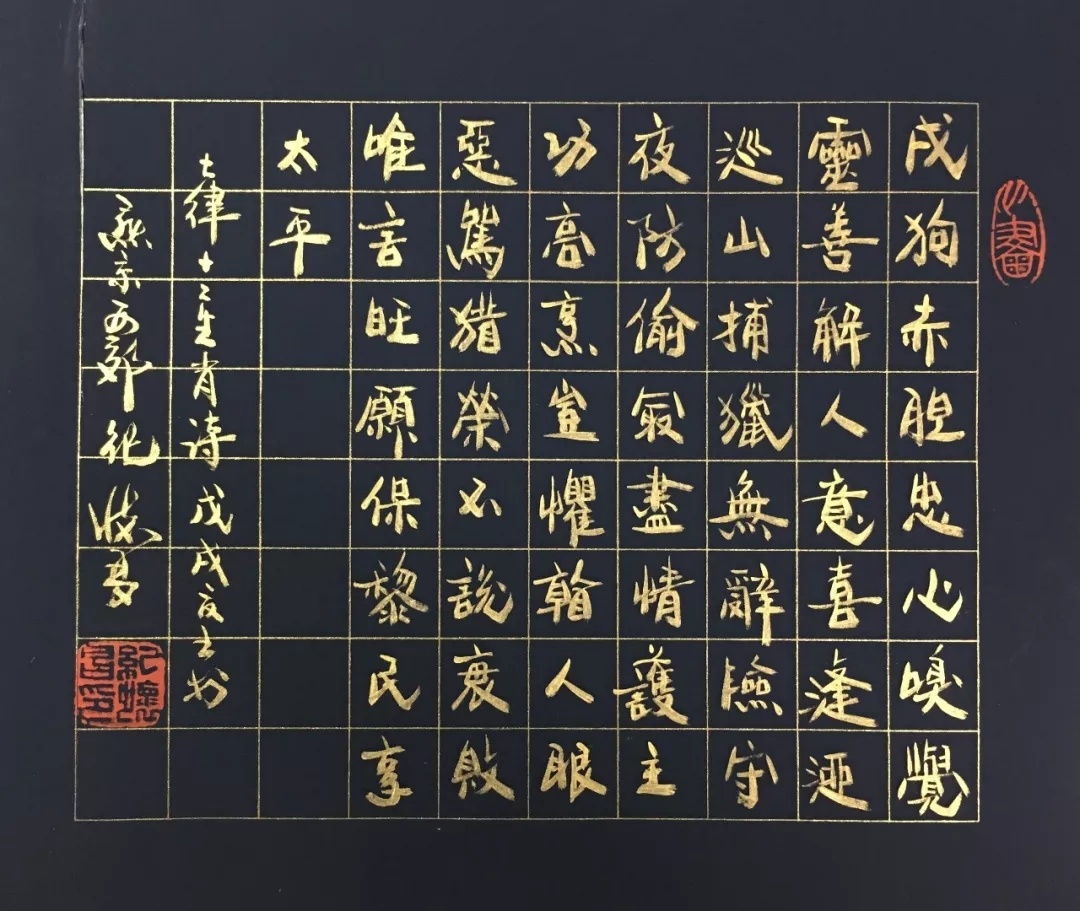 戌狗赤胆忠心嗅覺
靈善解人意喜逢迎
巡山捕獵無辭險守
夜防偷敢盡情護主
功高烹豈懼翰人眼
惡駑猎榮不說衰敗
唯言旺願保黎民享
太平
七律十二生肖诗戊戌夏立书
燕京